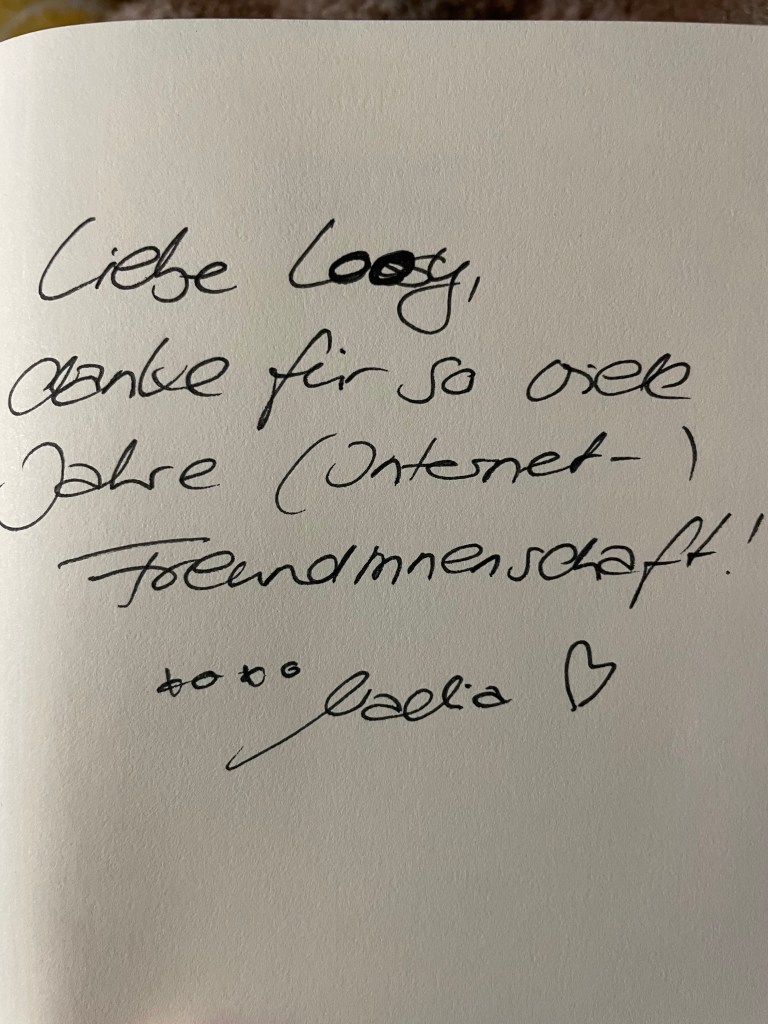 Liebe Loosy,
danke für so viele
Jahre (Internet-)
Freundinnenschaft!
xoxo